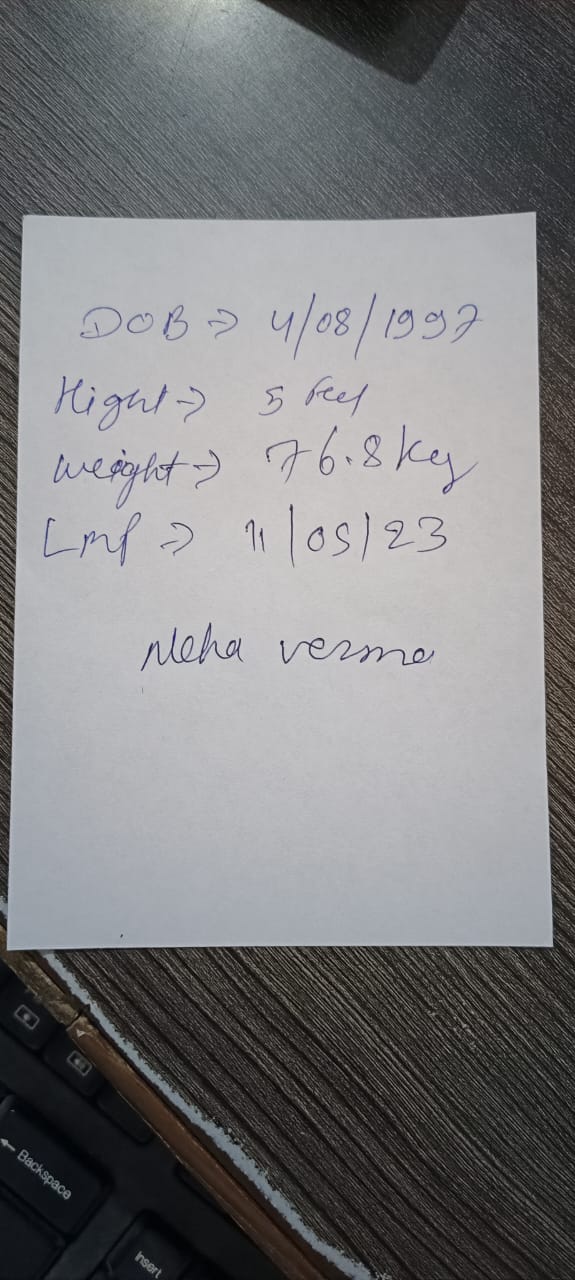 DOB => 4/08/1997
Hight -> 5 feet
weight -> 76.8 kg
Lmp => 11/05/23
Neha verma
Backspace
Insert